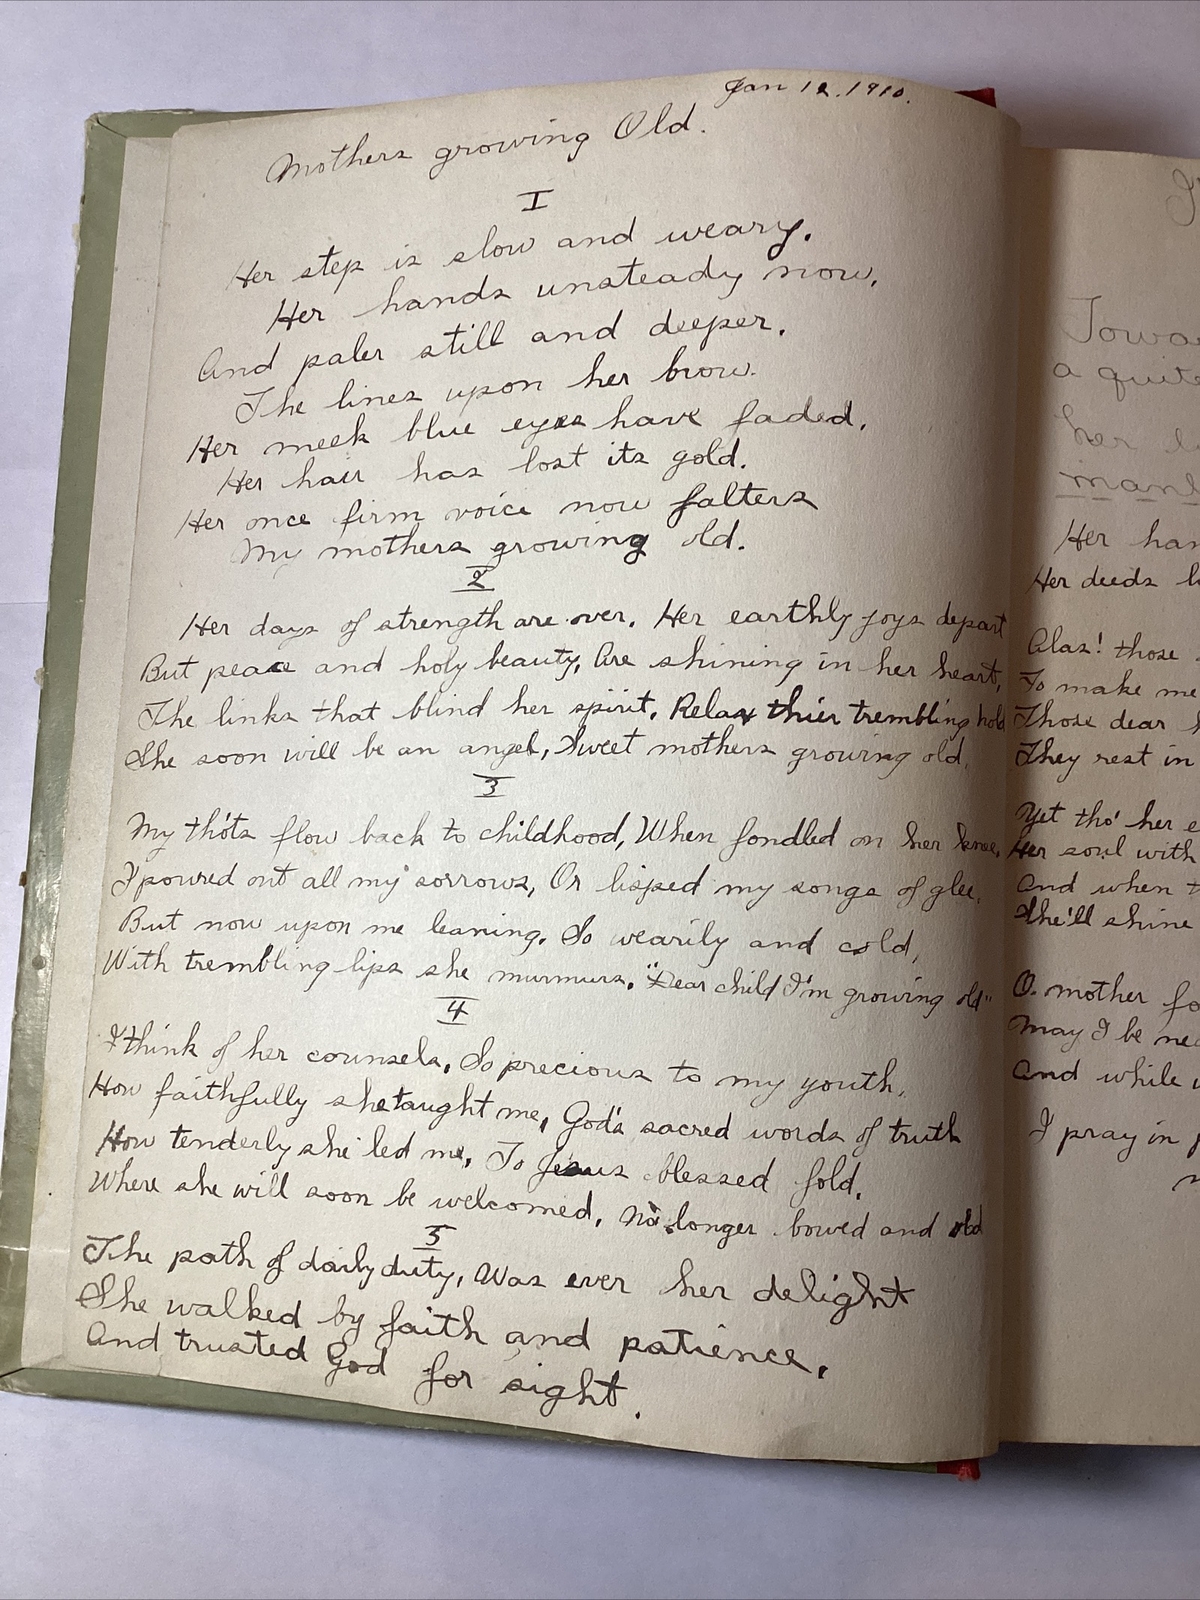 Jan 12. 1910.
Mothers growing Old.
I
Her step is slow and weary.
Her hands unsteady now,
And paler still and deeper.
The lines upon her brow.
Her meek blue eyes have faded,
Her hair has lost its gold.
Her once firm voice now falters
My mothers growing old.
2
Her days of strength are over. Her earthly joys depart
But peace and holy beauty, Are shining in her heart,
The links that blind her spirit. Relax thier trembling hold
She soon will be an angel, Sweet mothers growing old.
3
My tho'ts flow back to childhood, When fondled on her knee,
I poured out all my sorrows, Or lisped my songs of glee,
But now upon me leaning. So wearily and cold,
With trembling lips she murmurs. "Dear child I'm growing old"
4
I think of her counsels. So precious to my youth,
How faithfully she taught me, God's sacred words of truth
How tenderly she led me, To Jesus blessed fold,
Where she will soon be welcomed, No longer bowed and old
5
The path of daily duty, Was ever her delight
She walked by faith and patience,
And trusted God for sight.
a quite
her
Her han
Her deeds
Alas! those
To make me
Those dear
They rest in
Yet tho' her
Her soul with
And when
She'll shine
O. mother fo
May I be nea
And while
I pray in